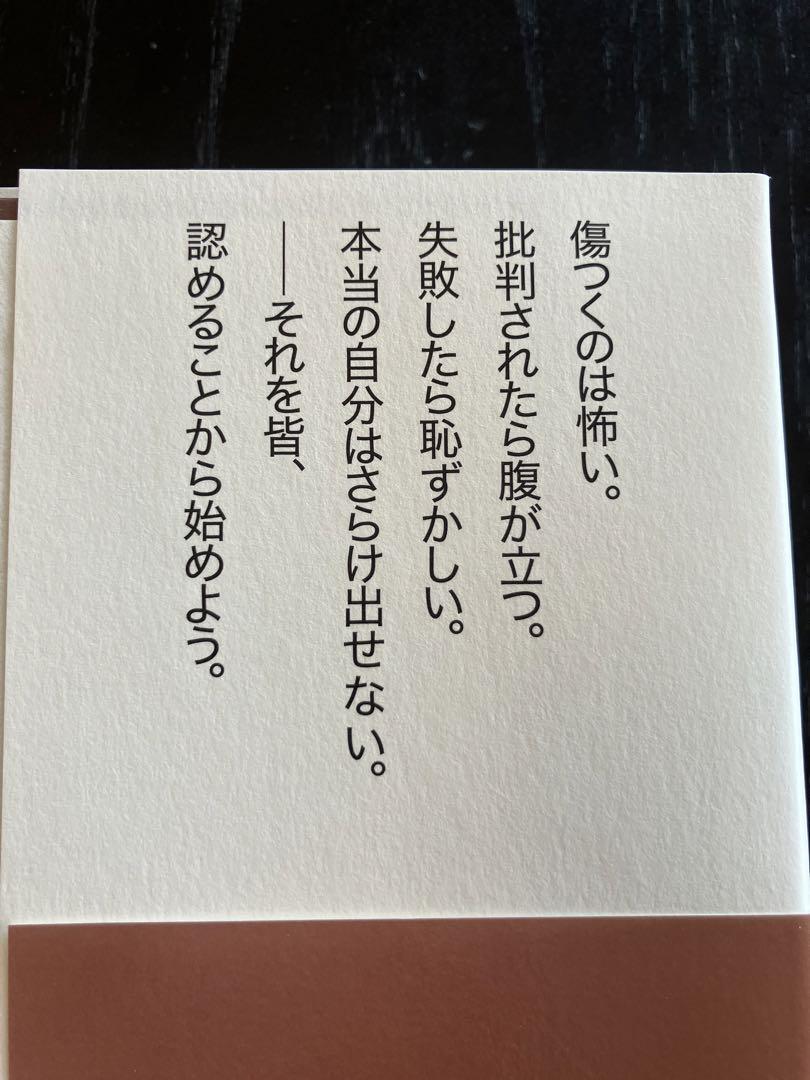 傷つくのは怖い。
批判されたら腹が立つ。
失敗したら恥ずかしい。
本当の自分はさらけ出せない。
――それを皆、
認めることから始めよう。